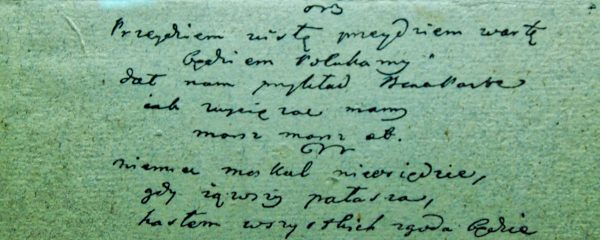 Przeydziem wisłę przeydziem wartę
będziem Polakamy
dał nam przykład Bonaparte
iak zwycięzac mamy
marsz marsz et.
niemiec moskal nieosiędzie,
gdy iąwszy pałasza,
hasłem wszystkich zgoda będzie